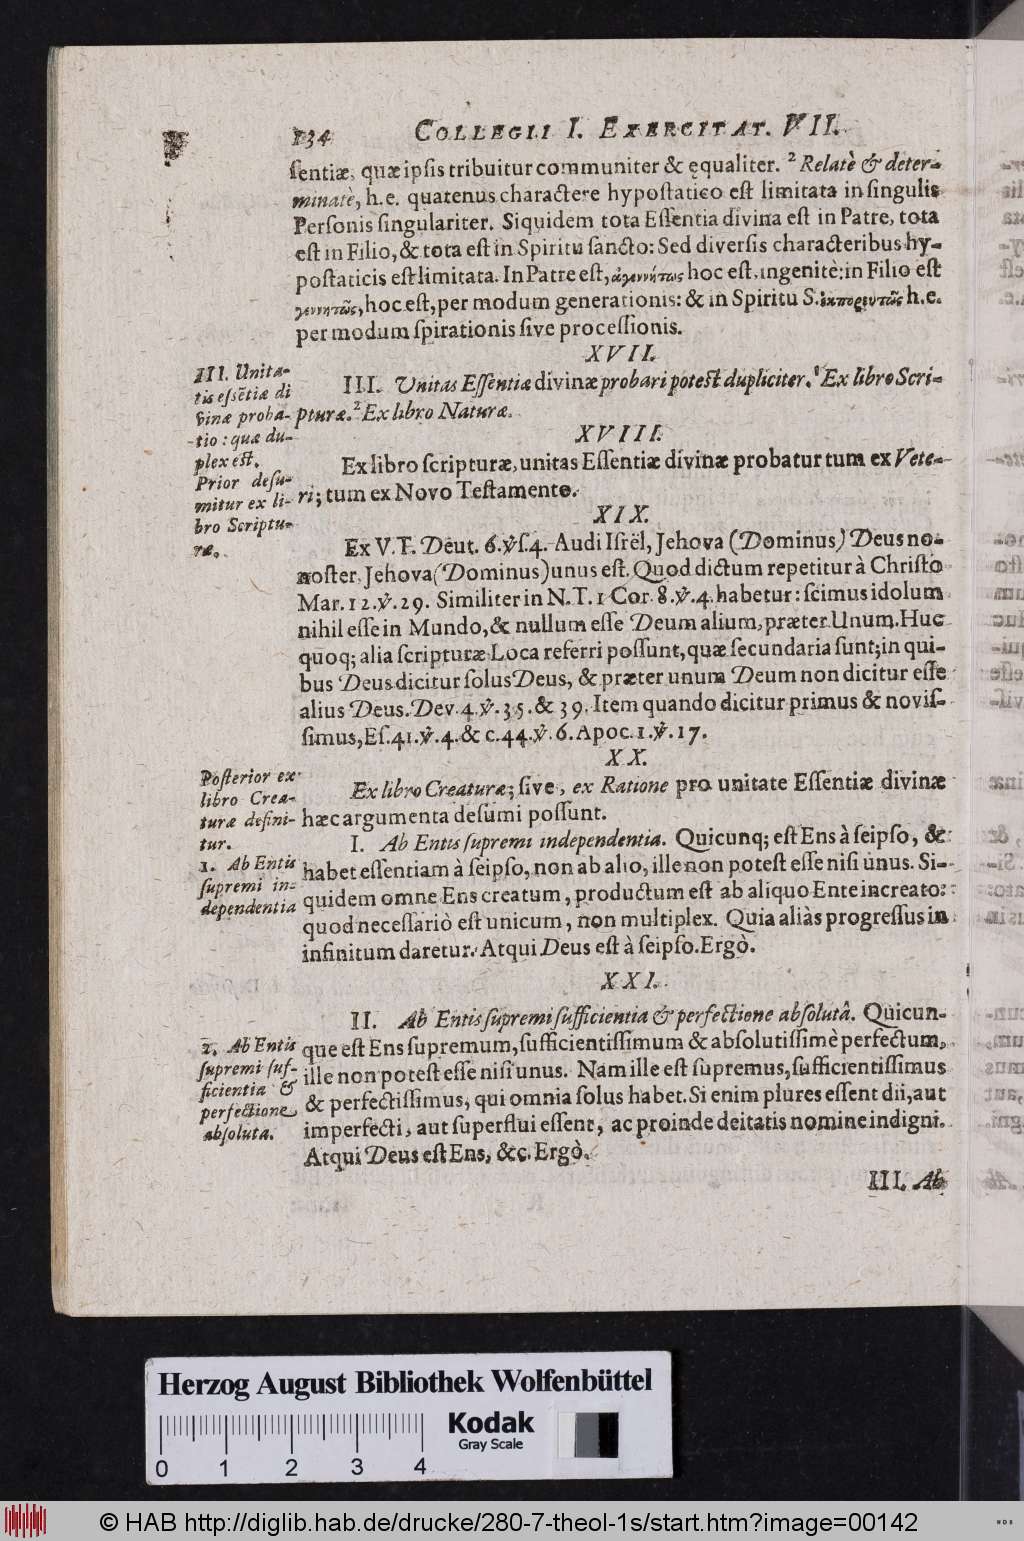 134 COLLEGII I. EXERCITAT. VII.
ſentiæ, quæ ipſis tribuitur communiter & ęqualiter. ² Relatè & deter-
minatè, h.e. quatenus charactere hypoſtatico eſt limitata in ſingulis
Perſonis ſingulariter. Siquidem tota Eſſentia divina eſt in Patre, tota
eſt in Filio, & tota eſt in Spiritu ſancto: Sed diverſis characteribus hy-
poſtaticis eſt limitata. In Patre eſt, ἀγεννήτως hoc eſt, ingenitè: in Filio eſt
γεννητῶς, hoc eſt, per modum generationis: & in Spiritu S. ἐκπορευτῶς h.e.
per modum ſpirationis ſive proceſſionis.
XVII.
III. Unita-
tis eſsẽtiæ di
vinæ proba-
tio: quæ du-
plex eſt.
Prior deſu-
mitur ex li-
bro Scriptu-
ræ.
III. Unitas Eſſentiæ divinæ probari poteſt dupliciter. ¹ Ex libro Scri-
pturæ. ² Ex libro Naturæ.
XVIII.
Ex libro ſcripturæ, unitas Eſſentiæ divinæ probatur tum ex Vete-
ri; tum ex Novo Teſtamento.
XIX.
Ex V.T. Deut. 6. ꝟſ. 4. Audi Iſrël, Jehova (Dominus) Deus no-
noſter, Jehova (Dominus) unus eſt. Quod dictum repetitur à Chriſto
Mar. 12. ꝟ. 29. Similiter in N.T. 1 Cor. 8. ꝟ. 4. habetur: ſcimus idolum
nihil eſſe in Mundo, & nullum eſſe Deum alium, præter Unum. Huc
quoq; alia ſcripturæ Loca referri poſſunt, quæ ſecundaria ſunt; in qui-
bus Deus dicitur ſolus Deus, & præter unum Deum non dicitur eſſe
alius Deus. Dev. 4. ꝟ. 35. & 39. Item quando dicitur primus & noviſ-
ſimus, Eſ. 41. ꝟ. 4. & c. 44. ꝟ. 6. Apoc. 1. ꝟ. 17.
XX.
Poſterior ex
libro Crea-
turæ deſini-
tur.
1. Ab Entis
ſupremi in-
dependentia
Ex libro Creaturæ; ſive, ex Ratione pro unitate Eſſentiæ divinæ
hæc argumenta deſumi poſſunt.
I. Ab Entis ſupremi independentia. Quicunq; eſt Ens à ſeipſo, &
habet eſſentiam à ſeipſo, non ab alio, ille non poteſt eſſe niſi unus. Si-
quidem omne Ens creatum, productum eſt ab aliquo Ente increato:
quod neceſſariò eſt unicum, non multiplex. Quia aliàs progreſſus in
infinitum daretur. Atqui Deus eſt à ſeipſo. Ergò.
XXI.
2. Ab Entis
ſupremi ſuf-
ficientia &
perfectione
abſoluta.
II. Ab Entis ſupremi ſufficientia & perfectione abſolutâ. Quicun-
que eſt Ens ſupremum, ſufficientiſſimum & abſolutiſſimè perfectum,
ille non poteſt eſſe niſi unus. Nam ille eſt ſupremus, ſufficientiſſimus
& perfectiſſimus, qui omnia ſolus habet. Si enim plures eſſent dii, aut
imperfecti, aut ſuperflui eſſent, ac proinde deitatis nomine indigni.
Atqui Deus eſt Ens, &c. Ergò.
III. Ab
Herzog August Bibliothek Wolfenbüttel
Kodak
Gray Scale
0 1 2 3 4
© HAB http://diglib.hab.de/drucke/280-7-theol-1s/start.htm?image=00142